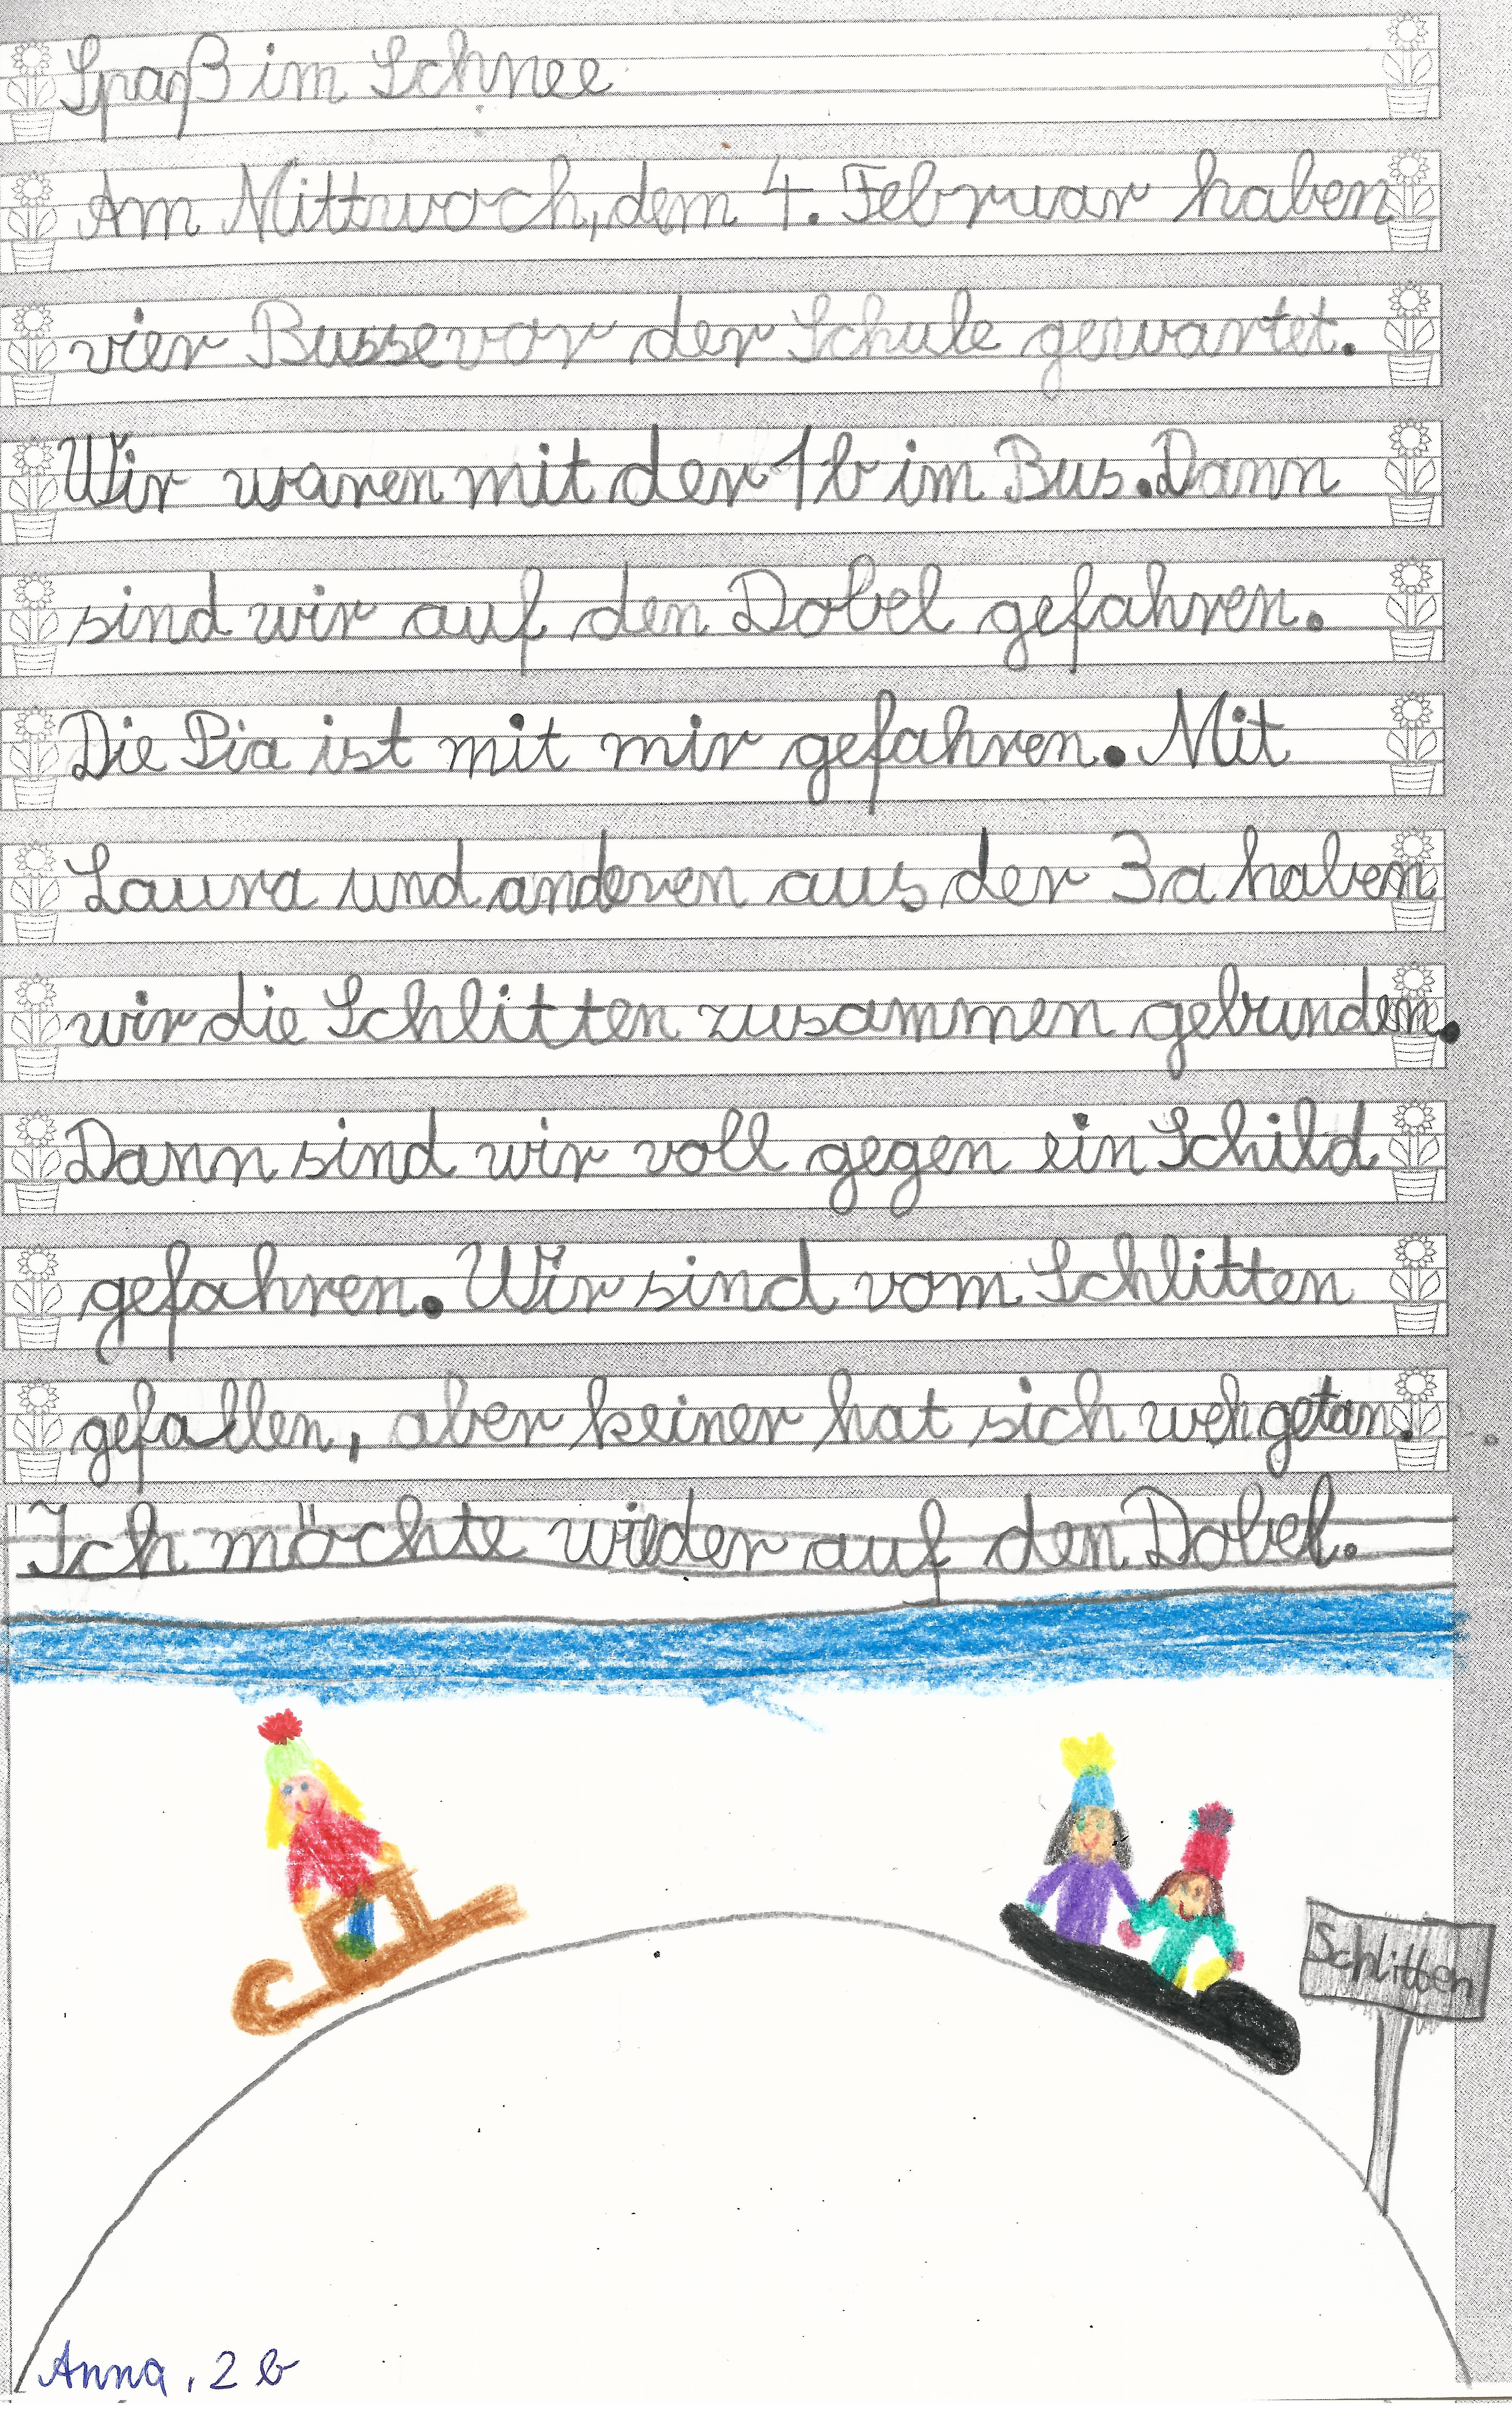 Spaß im Schnee
Am Mittwoch, dem 4. Februar haben
vier Busse vor der Schule gewartet.
Wir waren mit der 1b im Bus. Dann
sind wir auf den Dobel gefahren.
Die Pia ist mit mir gefahren. Mit
Laura und anderen aus der 3a haben
wir die Schlitten zusammen gebunden.
Dann sind wir voll gegen ein Schild
gefahren. Wir sind vom Schlitten
gefallen, aber keiner hat sich weh getan.
Ich möchte wieder auf den Dobel.
Schlitten
Anna, 2b